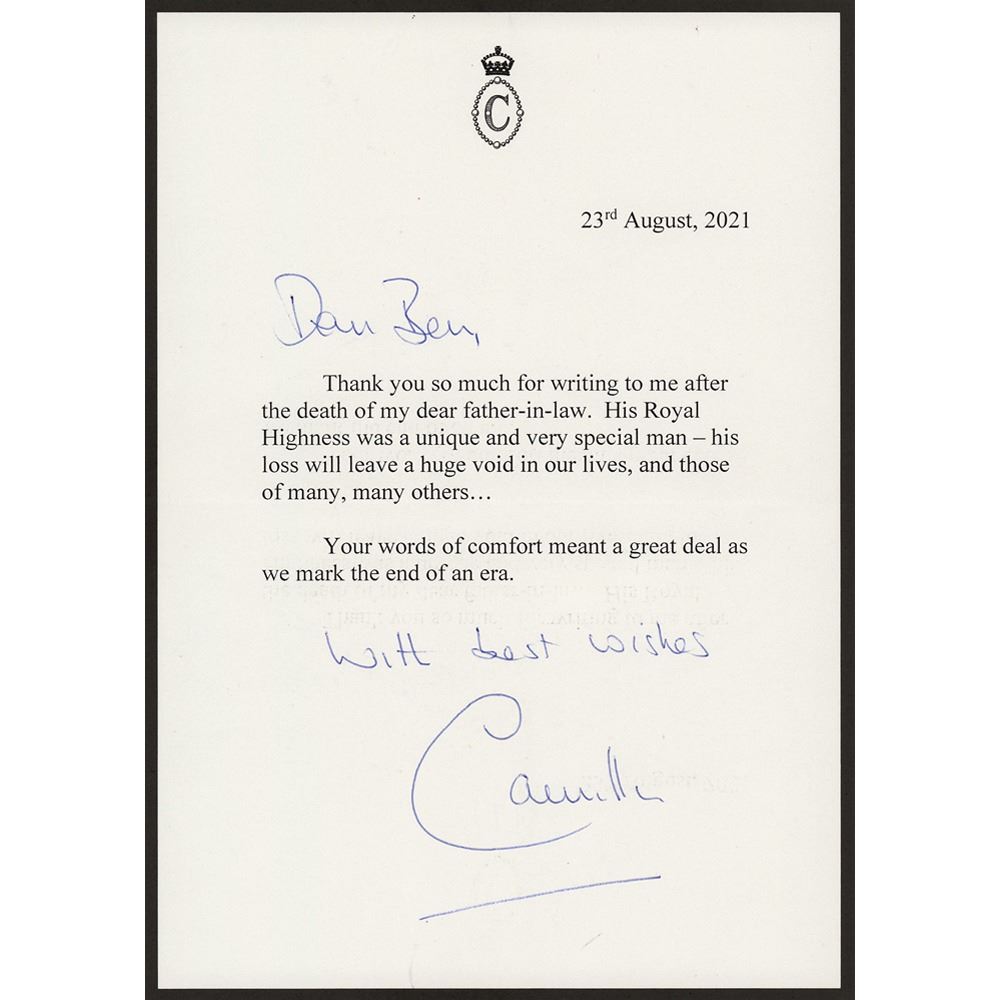 C
23rd August, 2021
Dear Ben,
Thank you so much for writing to me after
the death of my dear father-in-law. His Royal
Highness was a unique and very special man – his
loss will leave a huge void in our lives, and those
of many, many others…
Your words of comfort meant a great deal as
we mark the end of an era.
With best wishes
Camilla